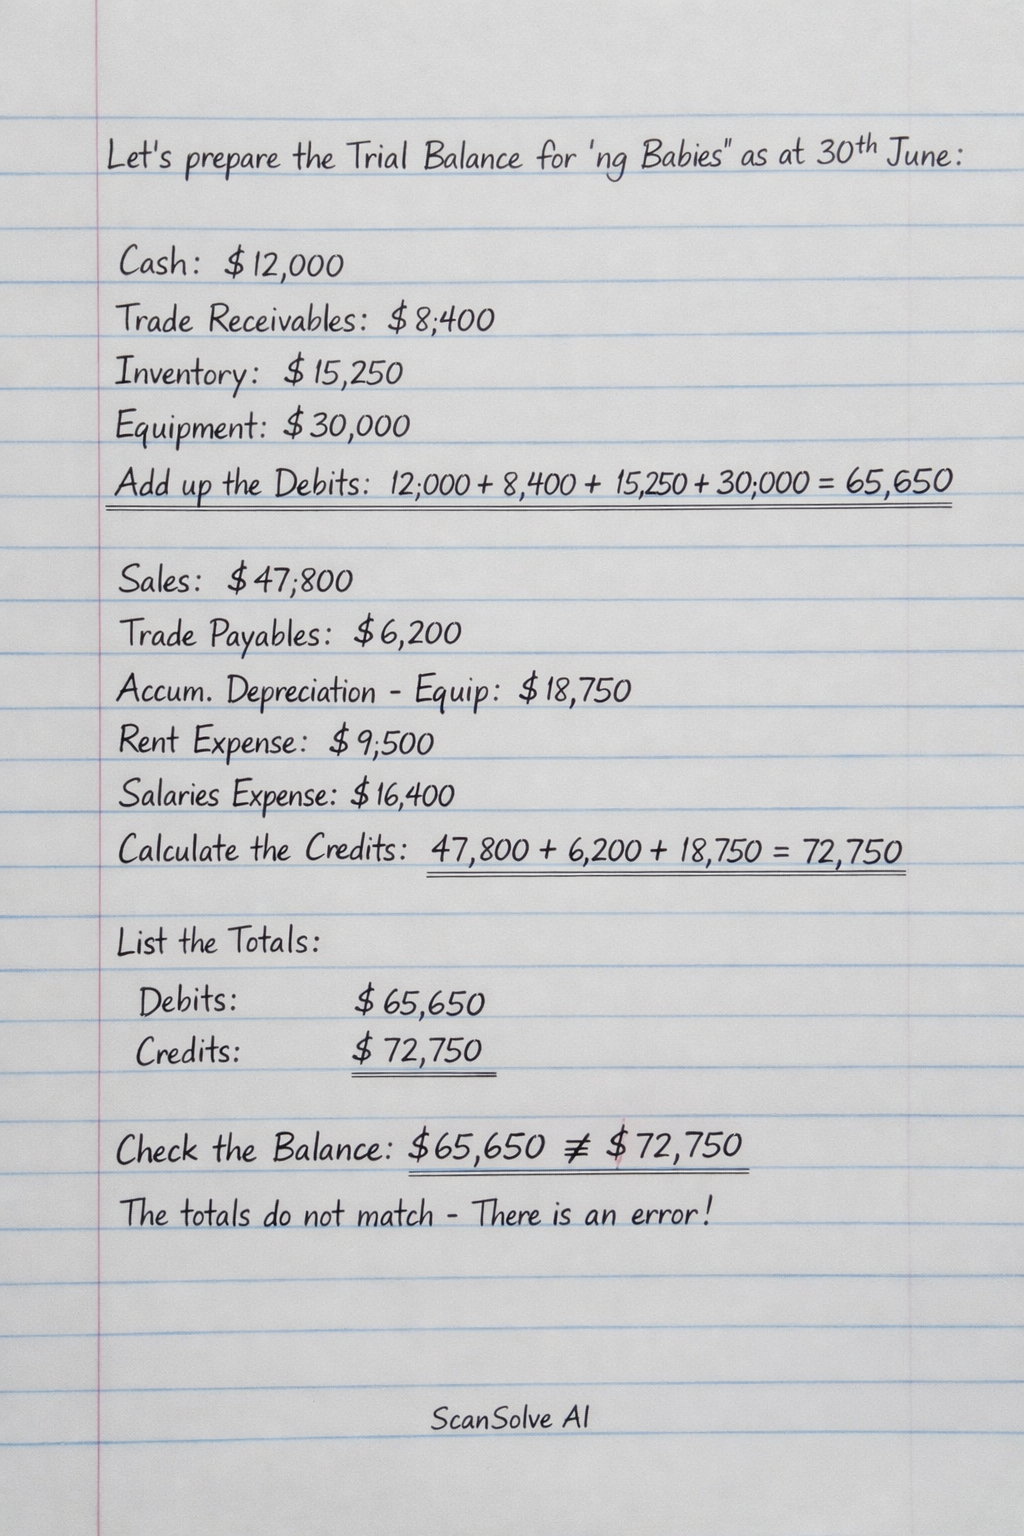 Let's prepare the Trial Balance for 'ng Babies" as at 30th June:
Cash: $12,000
Trade Receivables: $8;400
Inventory: $15,250
Equipment: $30,000
Add up the Debits: 12;000 + 8,400 + 15,250 + 30;000 = 65,650
Sales: $47;800
Trade Payables: $6,200
Accum. Depreciation - Equip: $18,750
Rent Expense: $9;500
Salaries Expense: $16,400
Calculate the Credits: 47,800 + 6,200 + 18,750 = 72,750
List the Totals:
Debits: $65,650
Credits: $72,750
Check the Balance: $65,650 ≢ $72,750
The totals do not match - There is an error!
ScanSolve AI